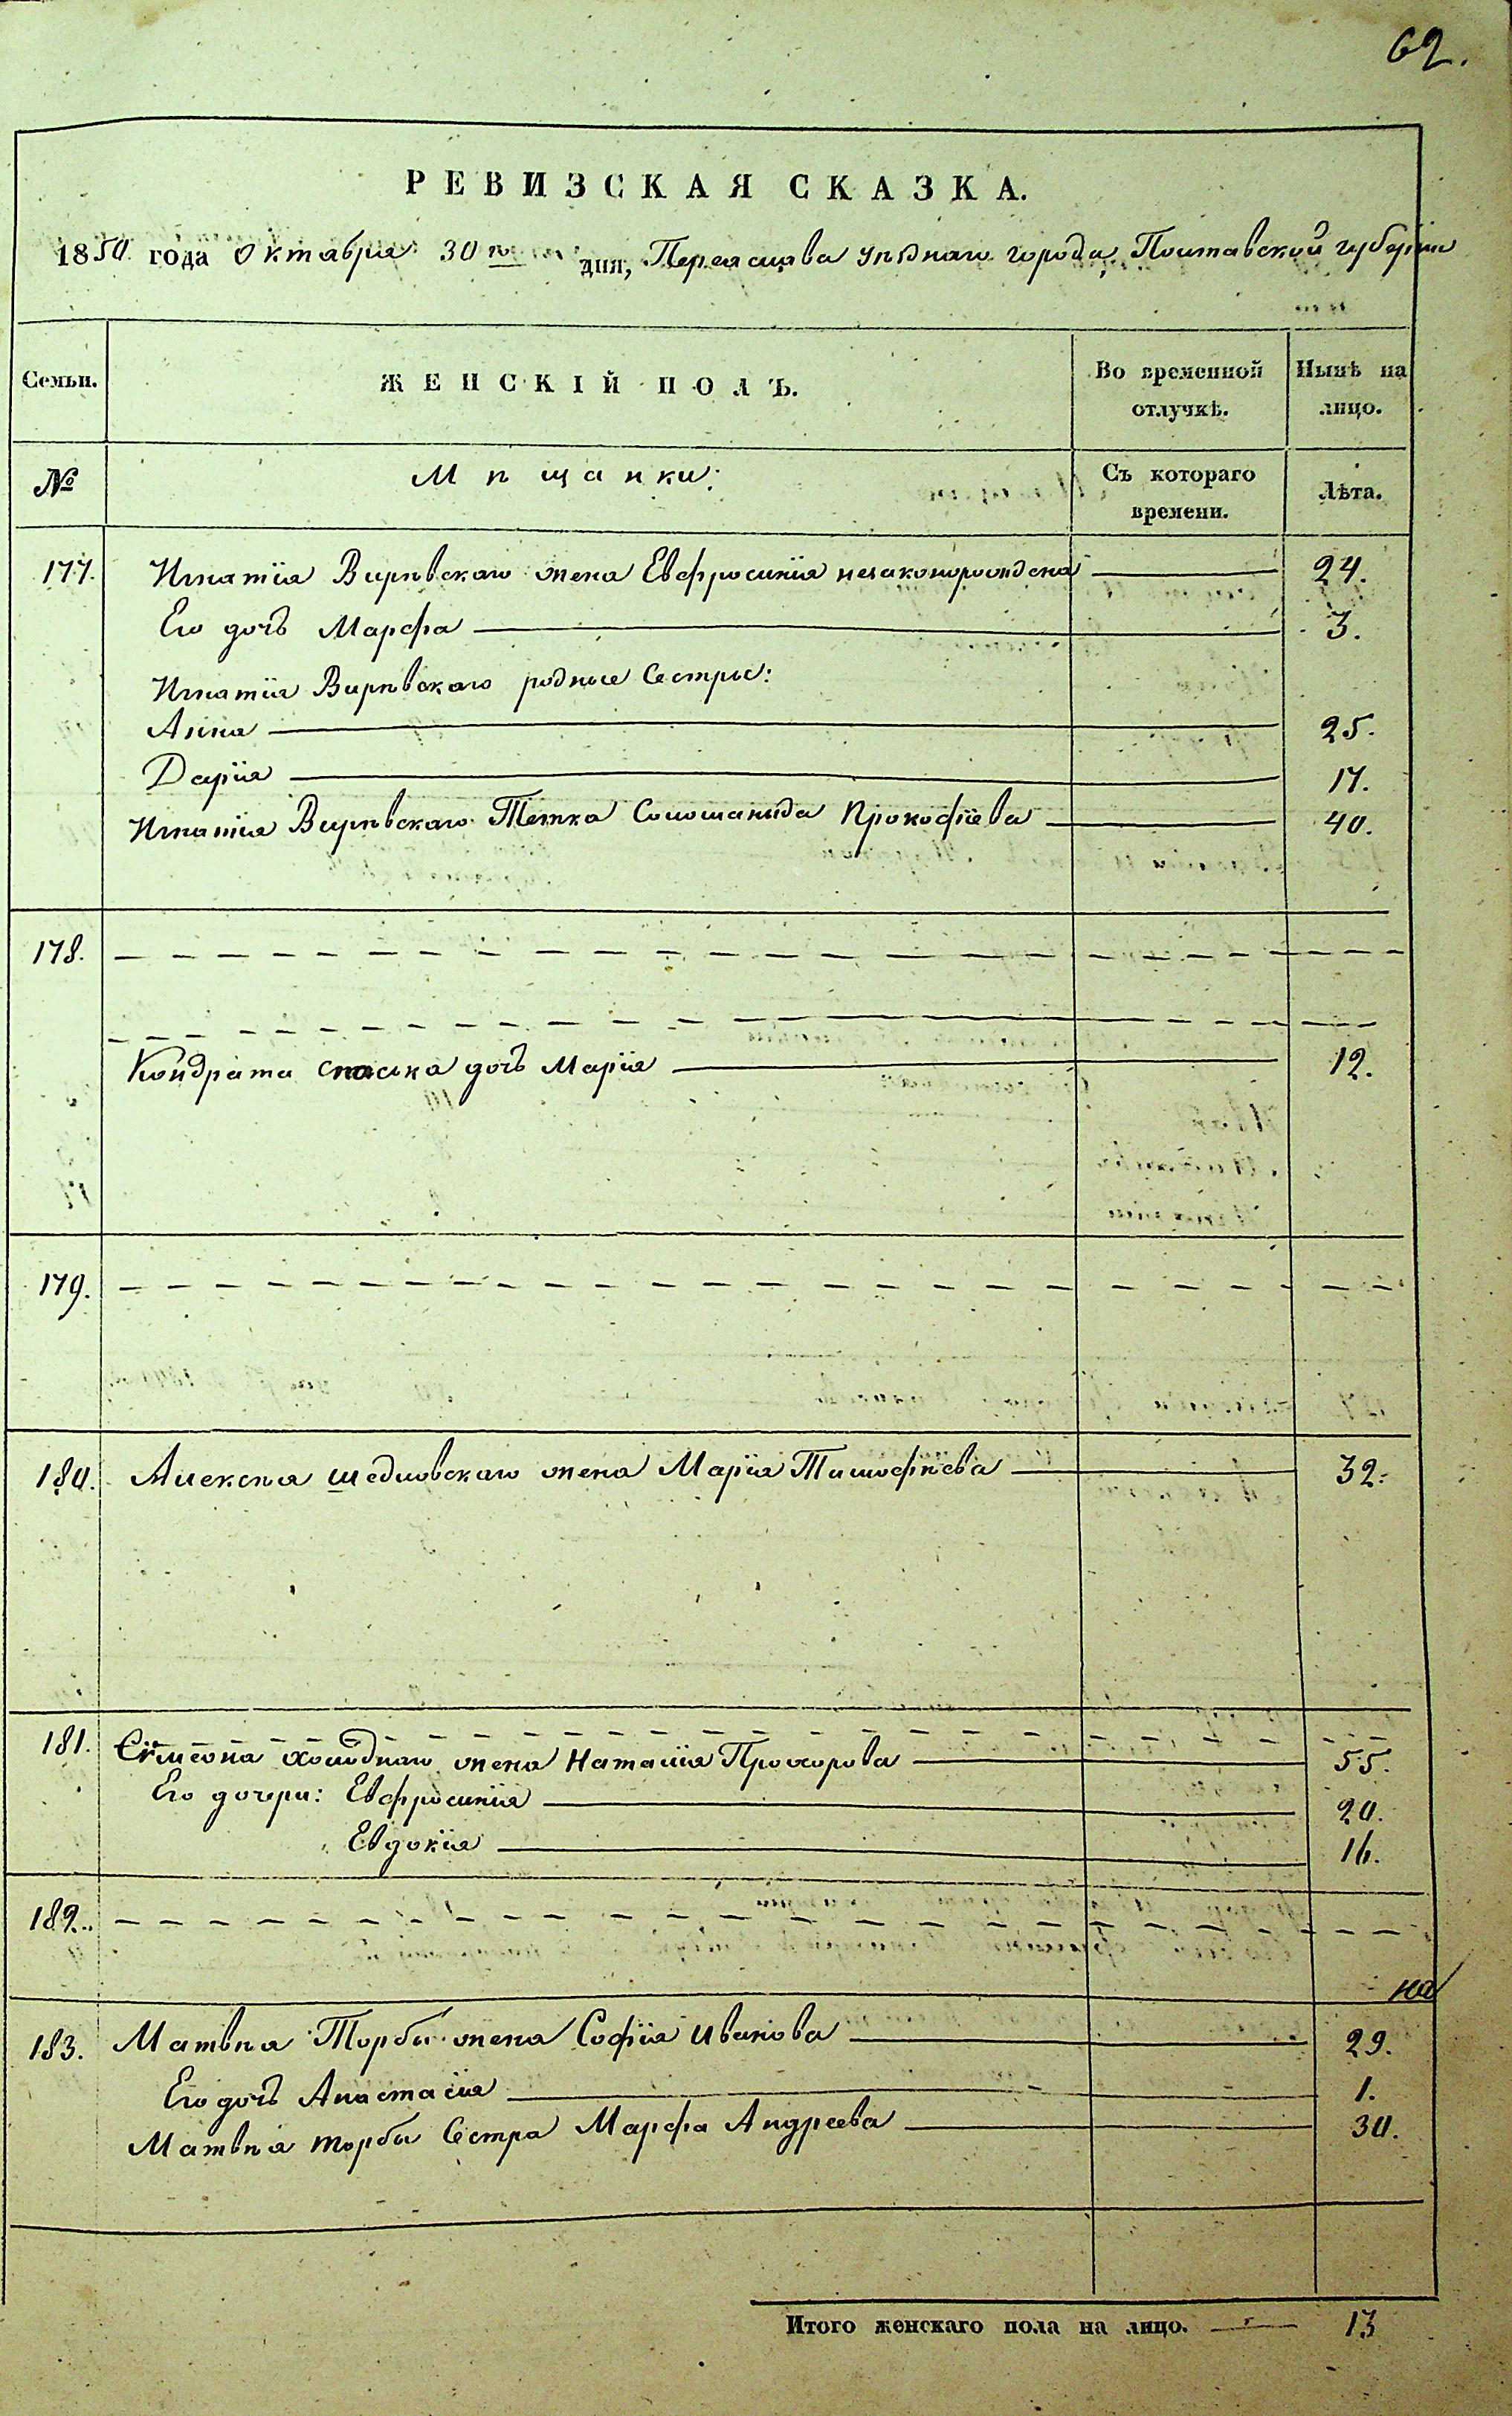 62.
РЕВИЗСКАЯ СКАЗКА.
1850 года Октября 30го дня, Переяслава уѣзднаго города, Полтавской губерніи
Семьи. ЖЕНСКІЙ ПОЛЪ. Во временной отлучкѣ. Нынѣ на лицо.
№ Мѣщанки: Съ котораго времени. Лѣта.
177. Игнатія Вирѣвскаго жена Евфросинія незаконорождена 24.
Его дочь Марфа 3.
Игнатія Вирѣвскаго родные Сестры:
Анна 25.
Дарія 17.
Игнатія Вирѣвскаго Тетка Соломанида Прокофіева 40.
178.
Кондрата дочь Марія 12.
179.
180. Алексѣя шедловскаго жена Марія Тимофѣева 32.
181. Симеона холоднаго жена Наталія Прохорова 55.
Его дочери: Евфросинія 20.
Евдокія 16.
182.
на
183. Матвѣя Торбы жена Софія иванова 29.
Его дочь Анастасія 1.
Матвѣя торбы Сестра Марфа Андреева 30.
Итого женскаго пола на лицо. 13